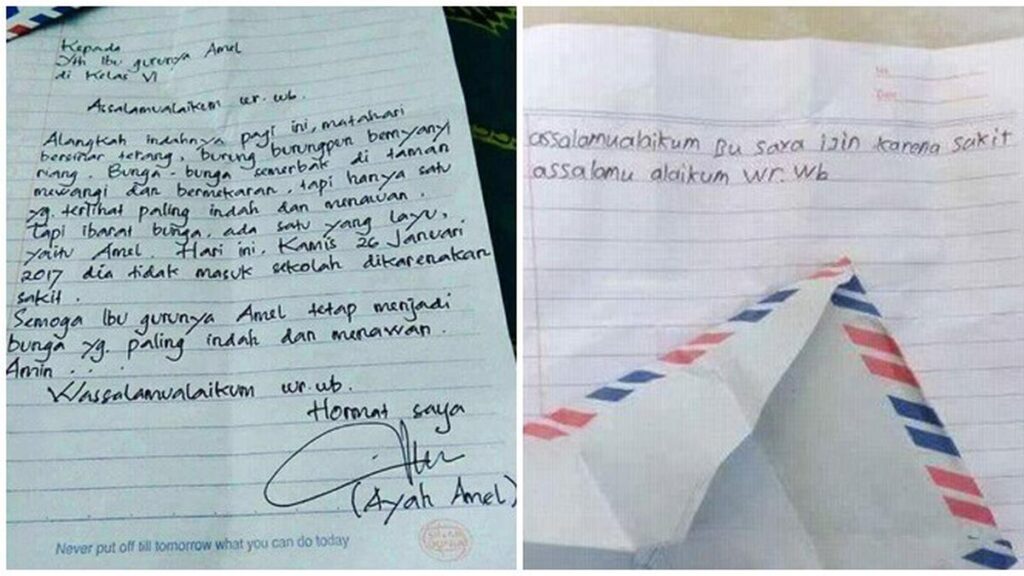 Kepada
Yth Ibu gurunya Amel
di Kelas VI
Assalamualaikum wr.wb.
Alangkah indahnya pagi ini, matahari
bersinar terang, burung burungpun bernyanyi
riang. Bunga-bunga semerbak di taman
mewangi dan bermekaran. tapi hanya satu
yg. terlihat paling indah dan menawan.
Tapi ibarat bunga, ada satu yang layu,
yaitu Amel. Hari ini, Kamis 26 Januari
2017 dia tidak masuk sekolah dikarenakan
sakit.
Semoga Ibu gurunya Amel tetap menjadi
bunga yg. paling indah dan menawan.
Amin . . .
Wassalamualaikum wr.wb.
Hormat saya
(Ayah Amel)
Never put off till tomorrow what you can do today
No.
Date
assalamualaikum Bu saya izin karena sakit
assalamu alaikum wr. wb